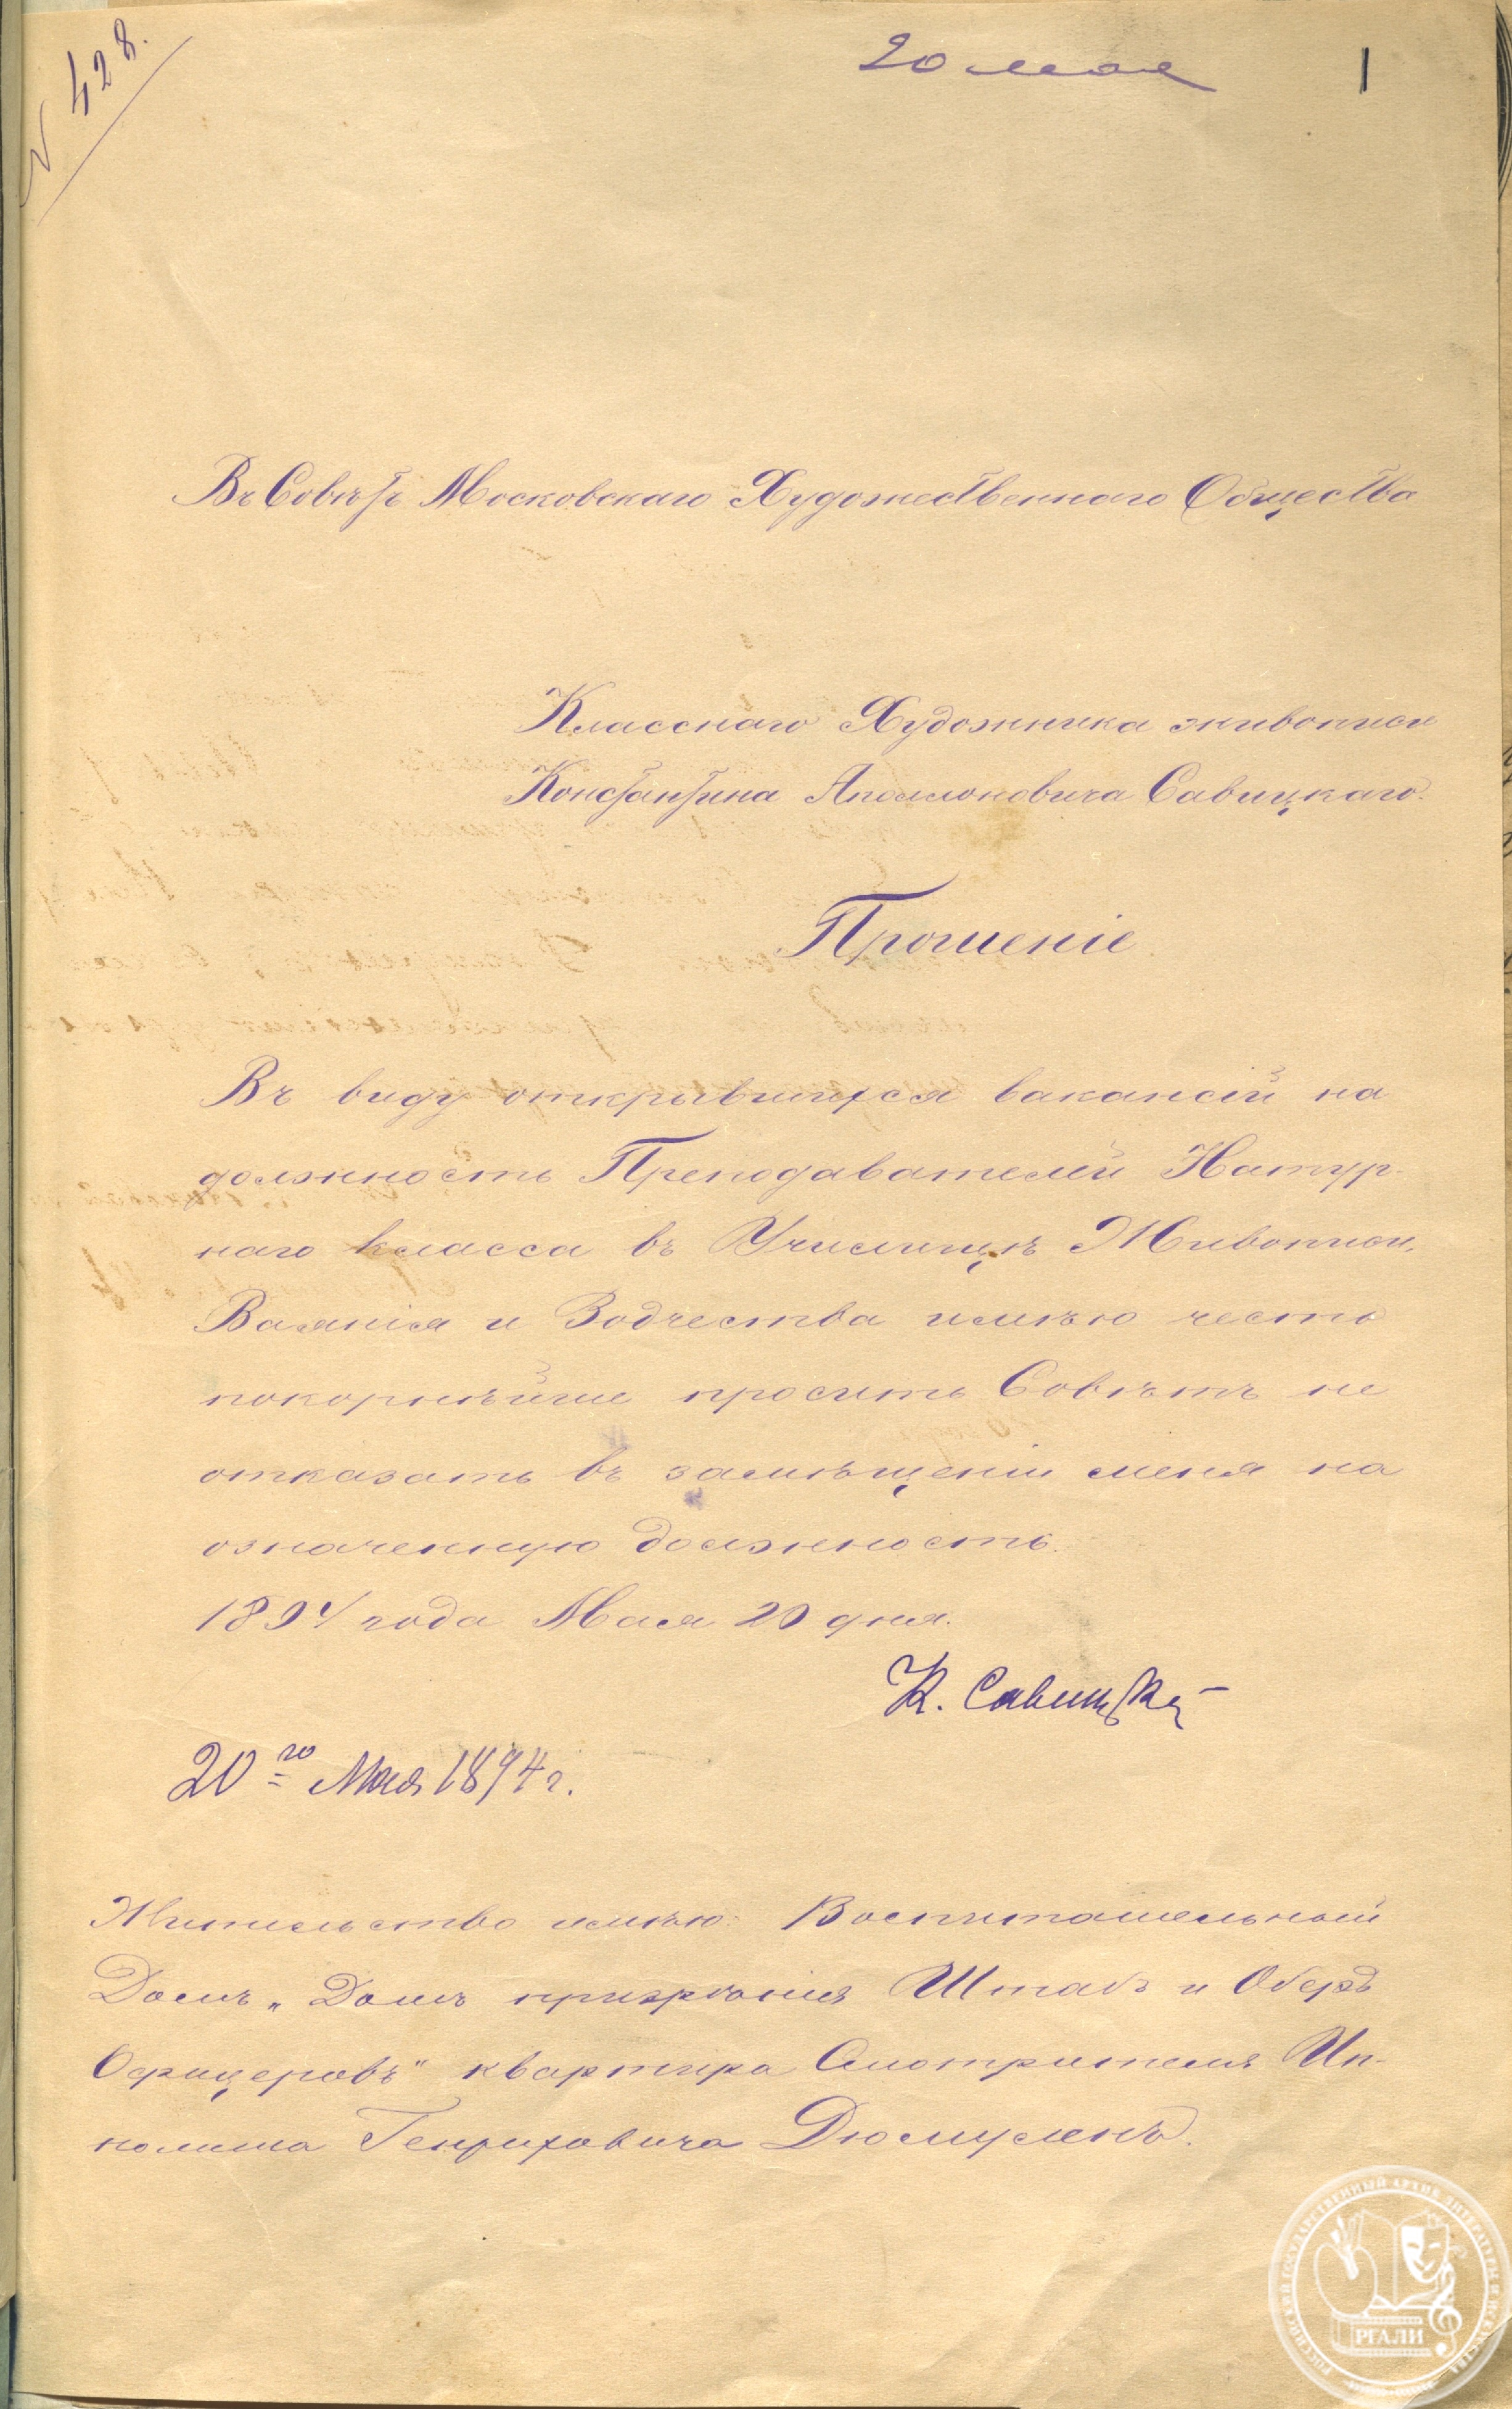 N 428.
20 мая
1
Въ Совѣтъ Московскаго Художественнаго Общества
Класснаго Художника живописи
Константина Аполлоновича Савицкаго.
Прошеніе.
Въ виду открывшихся вакансій на
должность Преподавателей Натур-
наго класса въ Училищѣ Живописи,
Ваянія и Зодчества имѣю честь
покорнѣйше просить Совѣтъ не
отказать въ замѣщеніи меня на
означенную должность.
1894 года Мая 20 дня.
К. Савицкій
20го Мая 1894 г.
Жительство имѣю: Воспитательный
Домъ „Домъ призрѣнія Штабъ и Оберъ
Офицеровъ" квартира Смотрителя Ип-
полита Генриховича Дюмуленъ.
РОССИЙСКИЙ ГОСУДАРСТВЕННЫЙ АРХИВ ЛИТЕРАТУРЫ И ИСКУССТВА
РГАЛИ